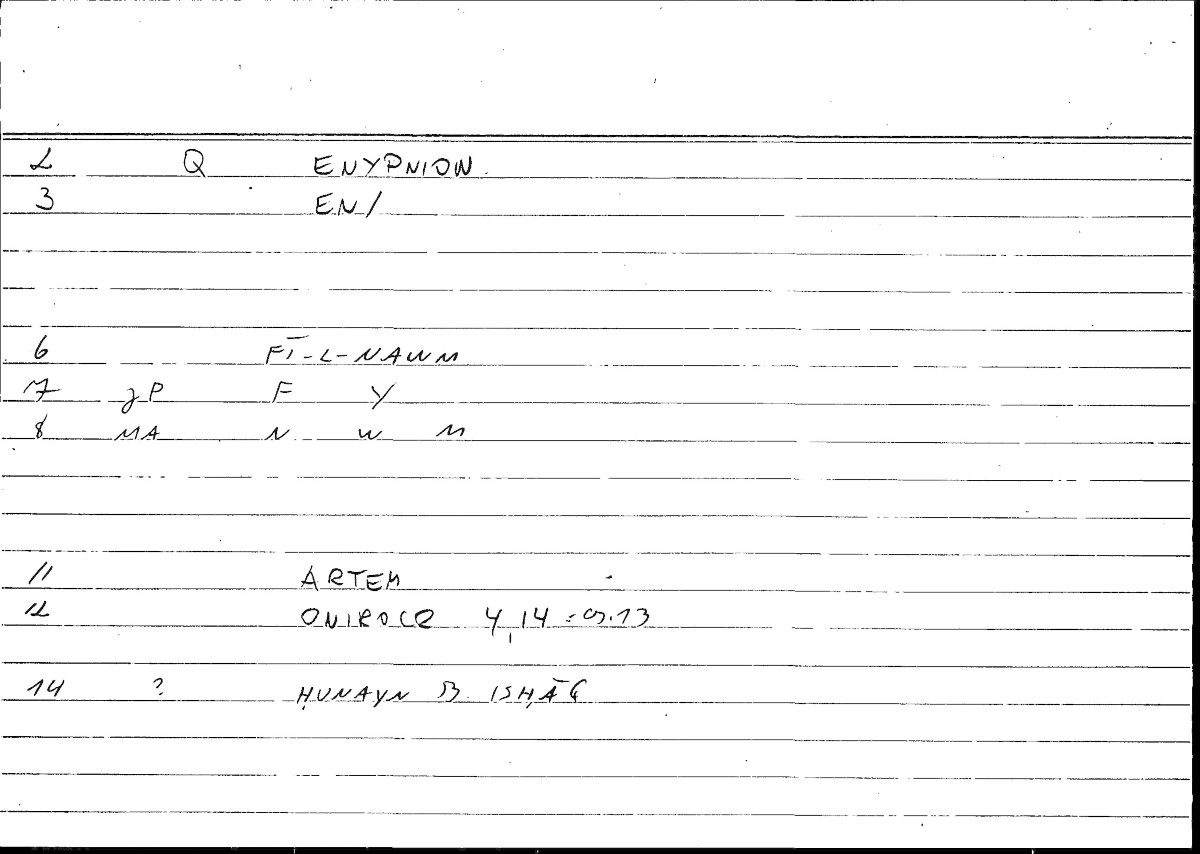 2 Q ENYPNION
3 EN/
6 FĪ-L-NAWM
7 JP F Y
8 MA N W M
11 ARTEM
12 ONIROCR 4,14
14 ? ḤUNAYN B. ISḤĀQ